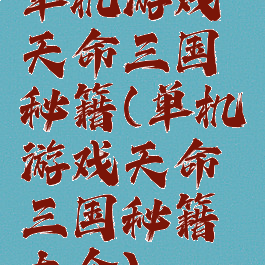 单机游戏
天命三国
秘籍(单机
游戏天命
三国秘籍